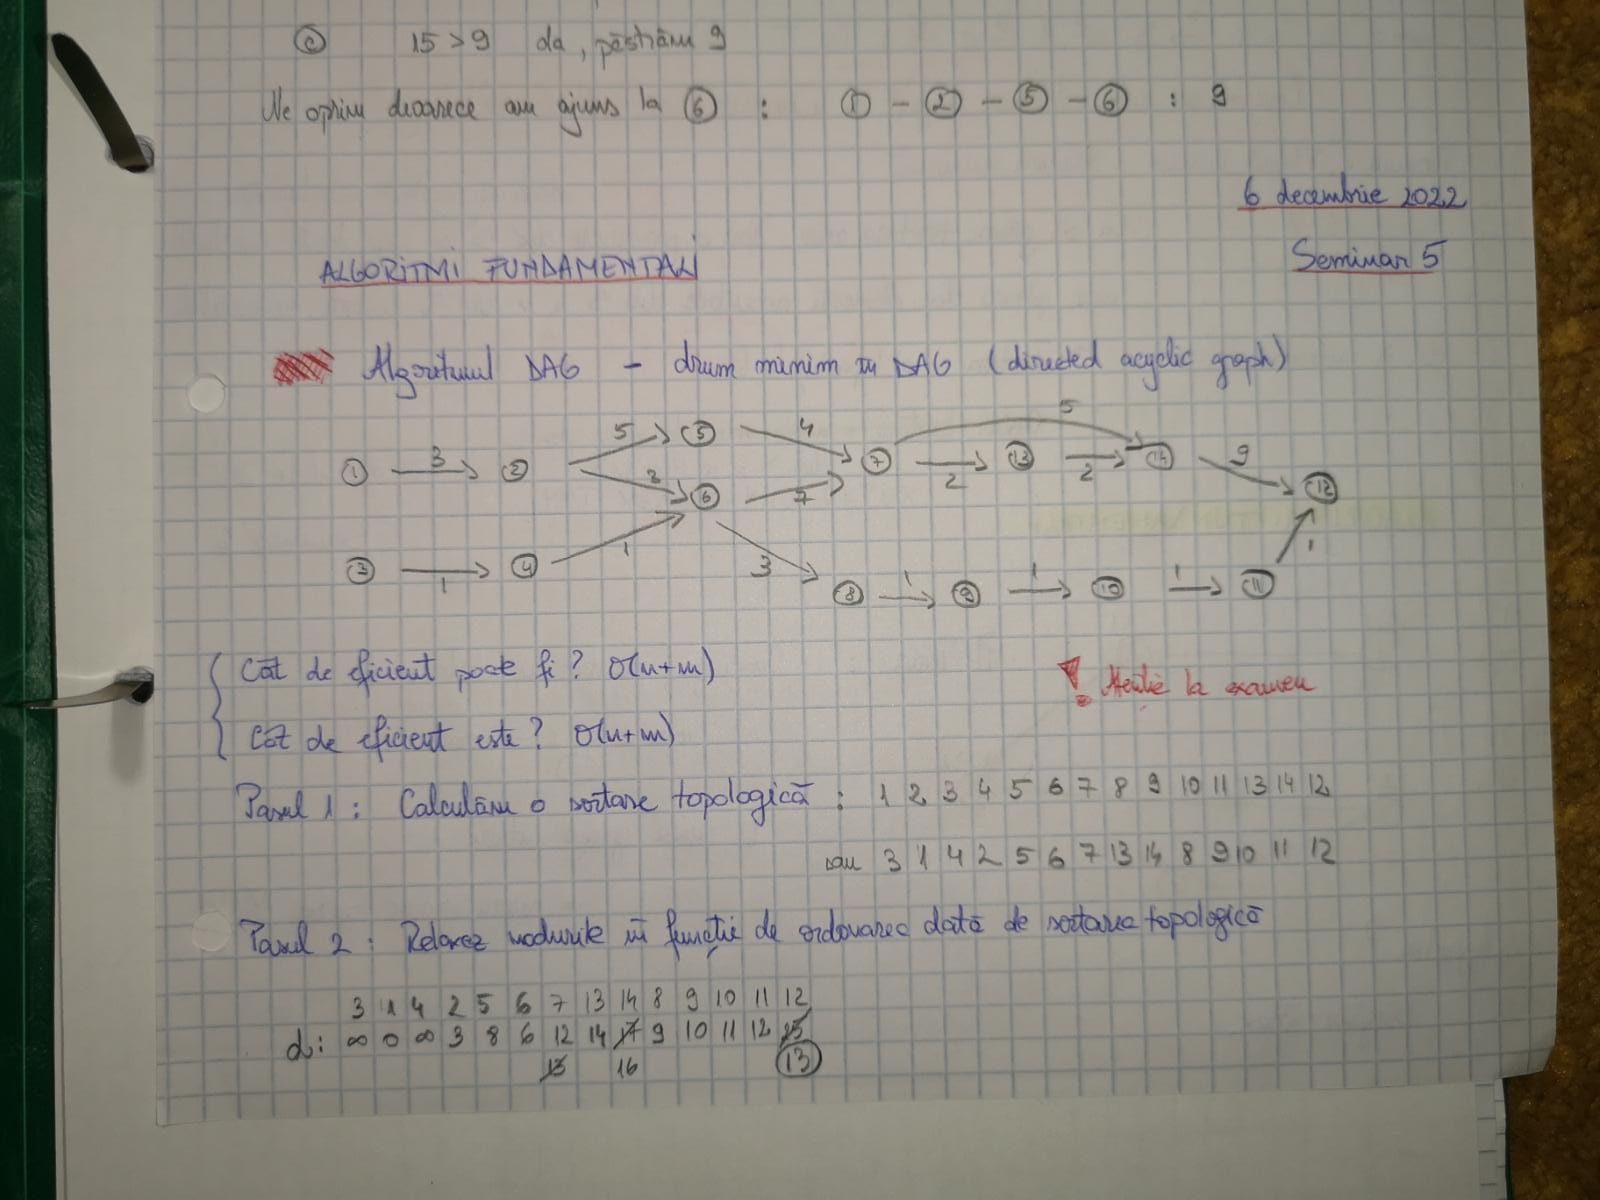 c 15 > 9 da, păstrăm 9
Ne oprim deoarece am ajuns la 6 : 1 - 2 - 5 - 6 : 9
6 decembrie 2022
Seminar 5
ALGORITMI FUNDAMENTALI
Algoritmul DAG - drum minim în DAG (directed acyclic graph)
5
5 5 4
1 3 2 7 2 13 2 14 9
6 7 12
3 1 4 1 3 1
8 1 9 1 10 1 11
Cât de eficient poate fi? O(n+m)
! Atenție la examen
Cât de eficient este? O(n+m)
Pasul 1: Calculăm o sortare topologică : 1 2 3 4 5 6 7 8 9 10 11 13 14 12
sau 3 1 4 2 5 6 7 13 14 8 9 10 11 12
Pasul 2: Relaxez nodurile în funcție de ordonarea dată de sortarea topologică
3 1 4 2 5 6 7 13 14 8 9 10 11 12
d: ∞ 0 ∞ 3 8 6 12 14 17 9 10 11 12 25
13 16 13